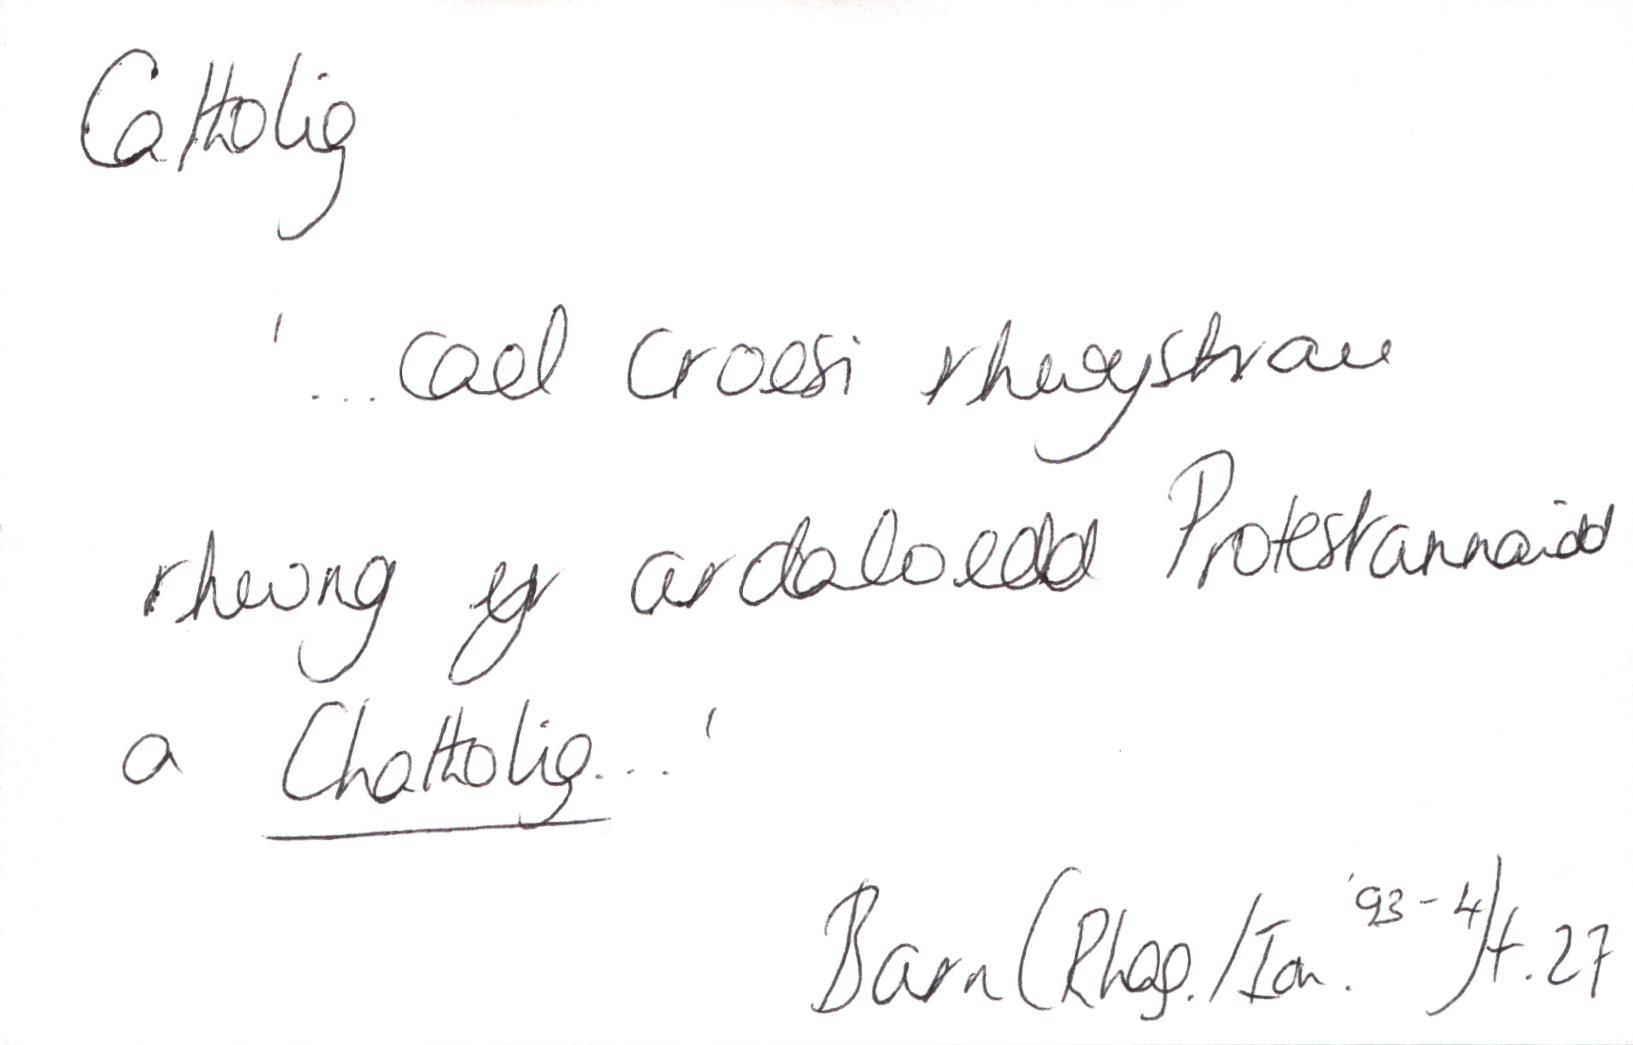 Catholig
'...cael croesi rhwystrau
rhwng yr ardaloedd Protestannaidd
a Chatholig...'
Barn (Rhag./Ion. '93-4) t. 27